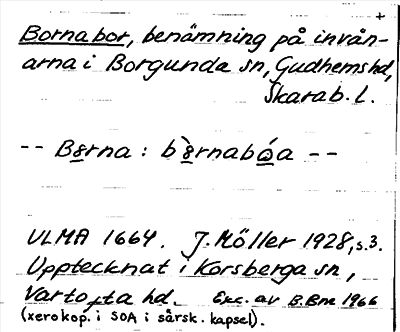 +
Bornabor, benämning på invån-
arna i Borgunda sn, Gudhems hd,
Skarab. l.
-- Borna : bòrnabóa --
ULMA 1664. J. Möller 1928, s. 3.
Upptecknat i Korsberga sn,
Vartofta hd. Exc. av B.Bm 1966
(xerokop. i SOA i särsk. kapsel).